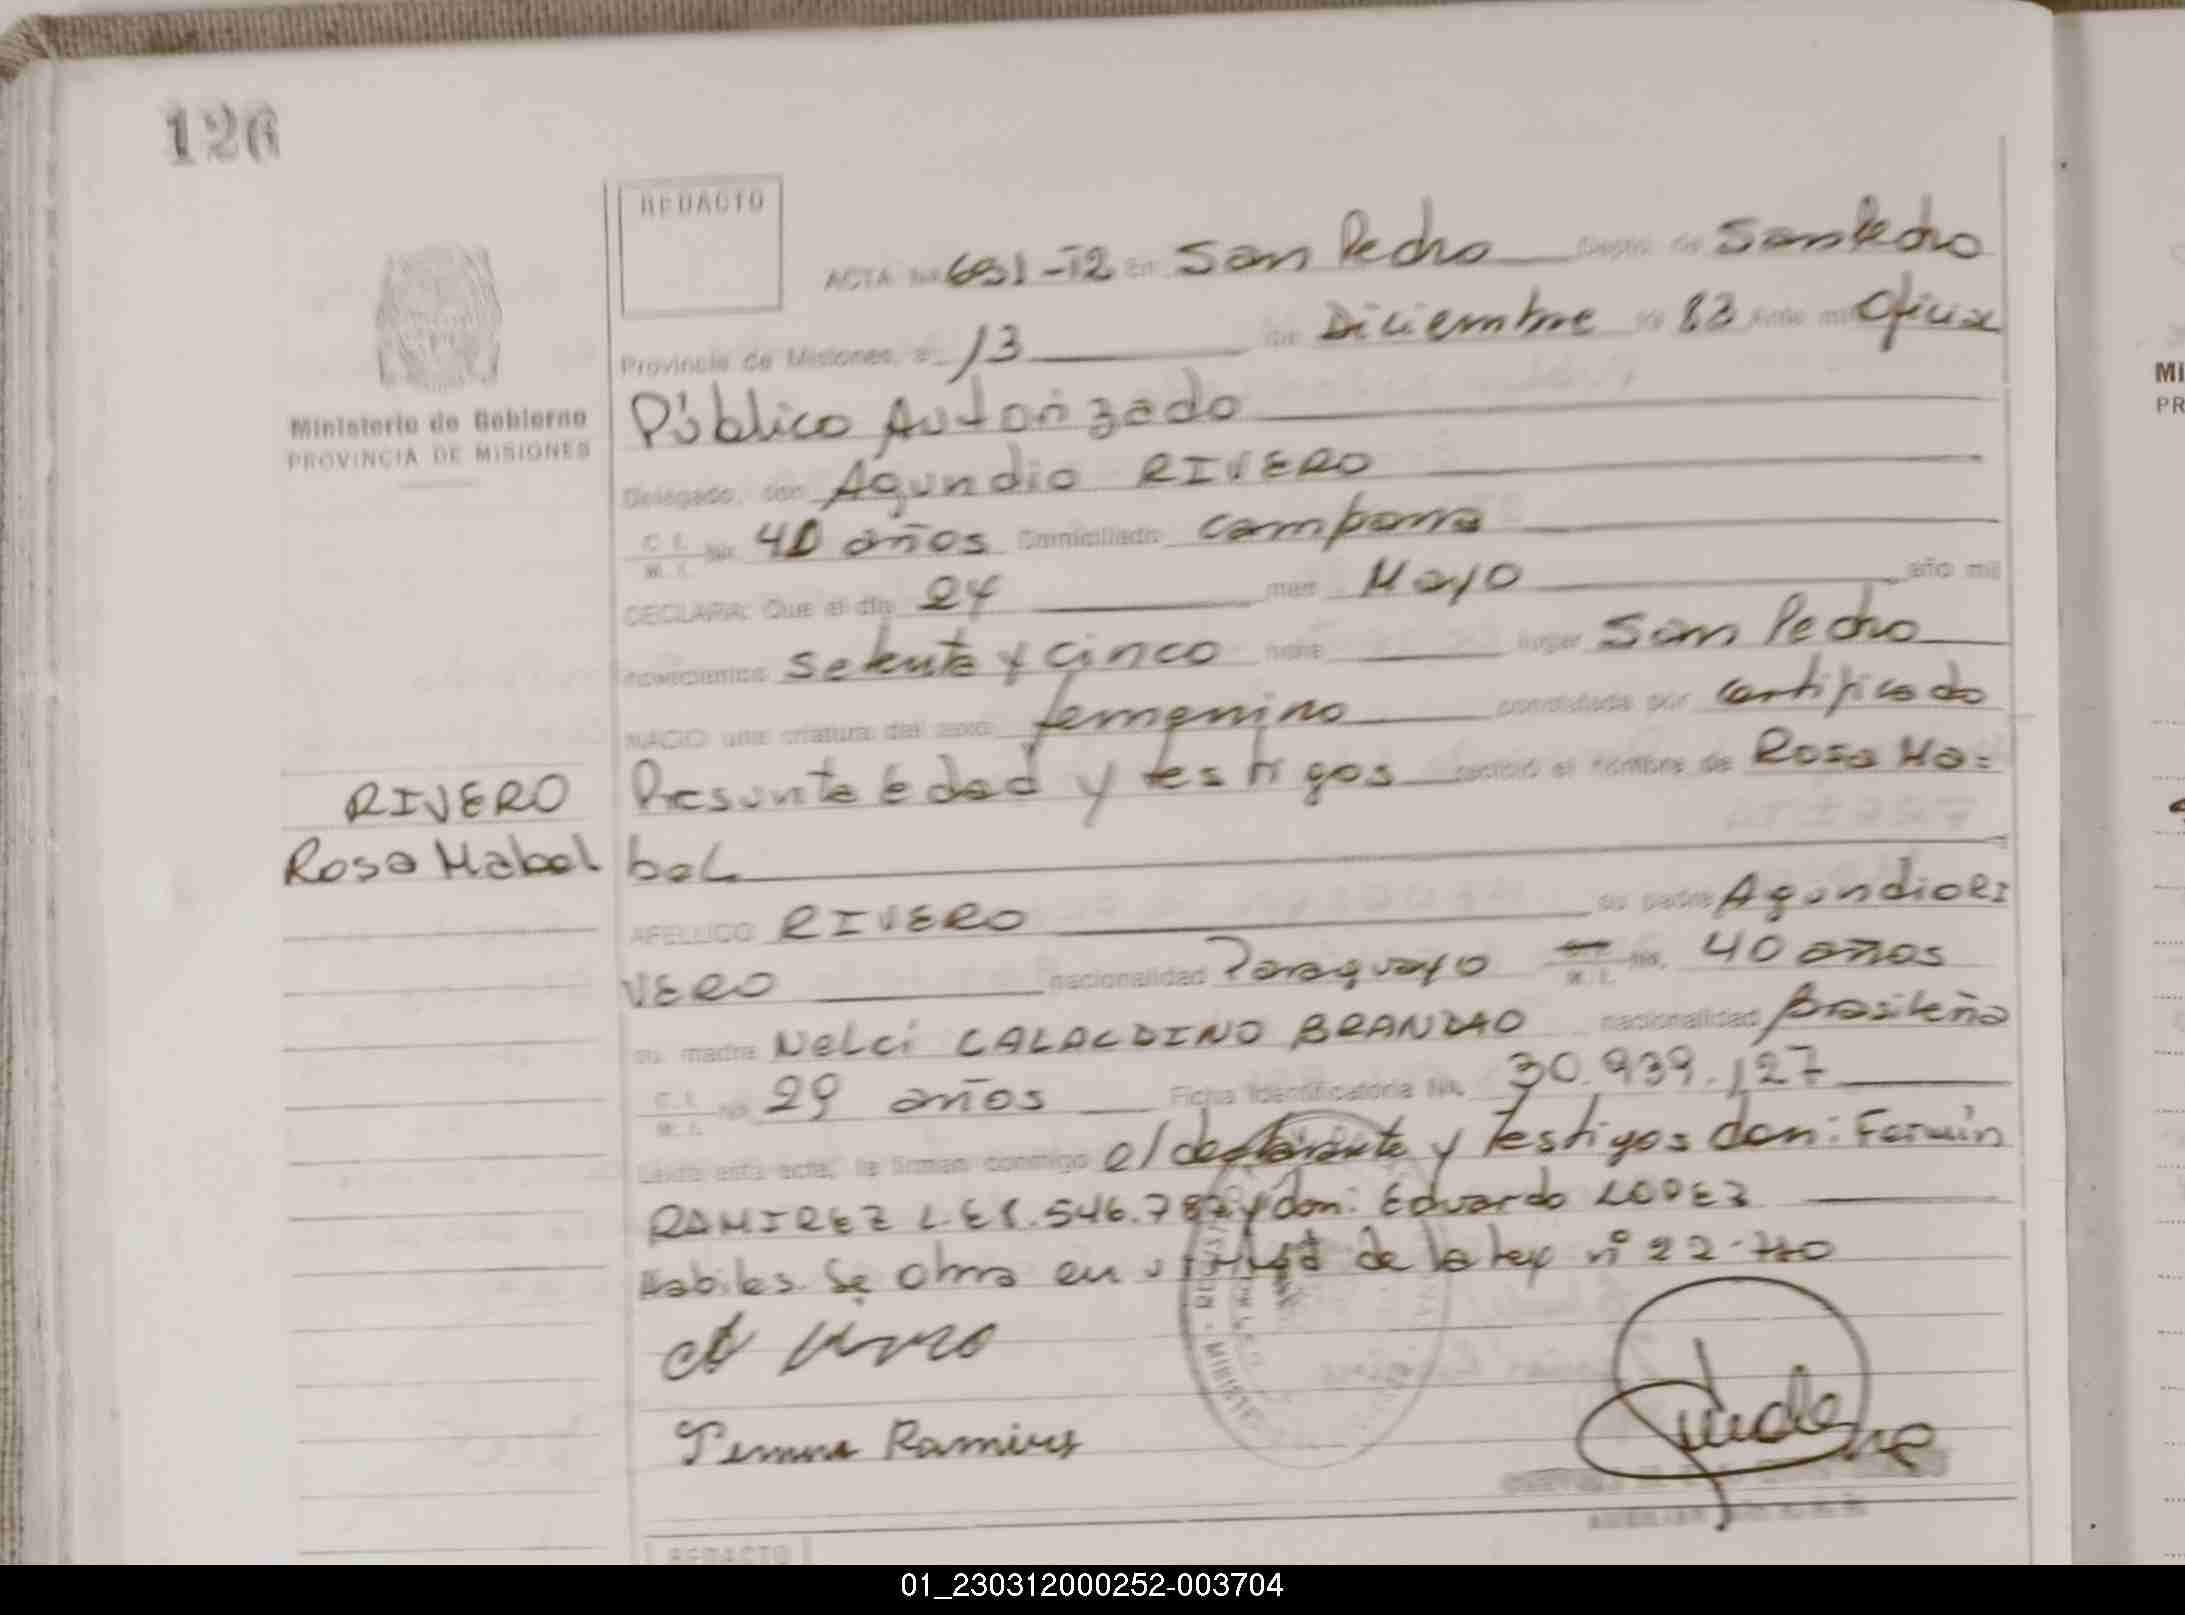 126
REDACTO
ACTA No 691-T2 en San Pedro Depto. de San Pedro
Provincia de Misiones, a 13 de Diciembre de 83 Ante mi Oficial
Ministerio de Gobierno
PROVINCIA DE MISIONES
Público Autorizado
Delegado, don Agundio RIVERO
C. I.
M. I. No. 40 años Domiciliado campana
DECLARA: Que el día 24 mes Mayo año mil
novecientos setenta y cinco hora lugar San Pedro
NACIO una criatura del sexo femenino constatada por certificado
Presunta Edad y testigos recibió el nombre de Rosa Ma=
bel
RIVERO
Rosa Mabel
APELLIDO RIVERO su padre Agundio RI
VERO nacionalidad Paraguayo M. I. No. 40 años
su madre Nelci CALACDINO BRANDAO nacionalidad Brasileña
C. I.
M. I. No 29 años Ficha Identificatoria No. 30.939.127
Leida esta acta, la firman conmigo el declarante y testigos don: Fermin
RAMIREZ L.E 8.546.787 y don: Eduardo LOPEZ
Habiles. Se obra en virtud de la ley nº 22.
Ramires
REDACTO
Mi
PR
01_230312000252-003704